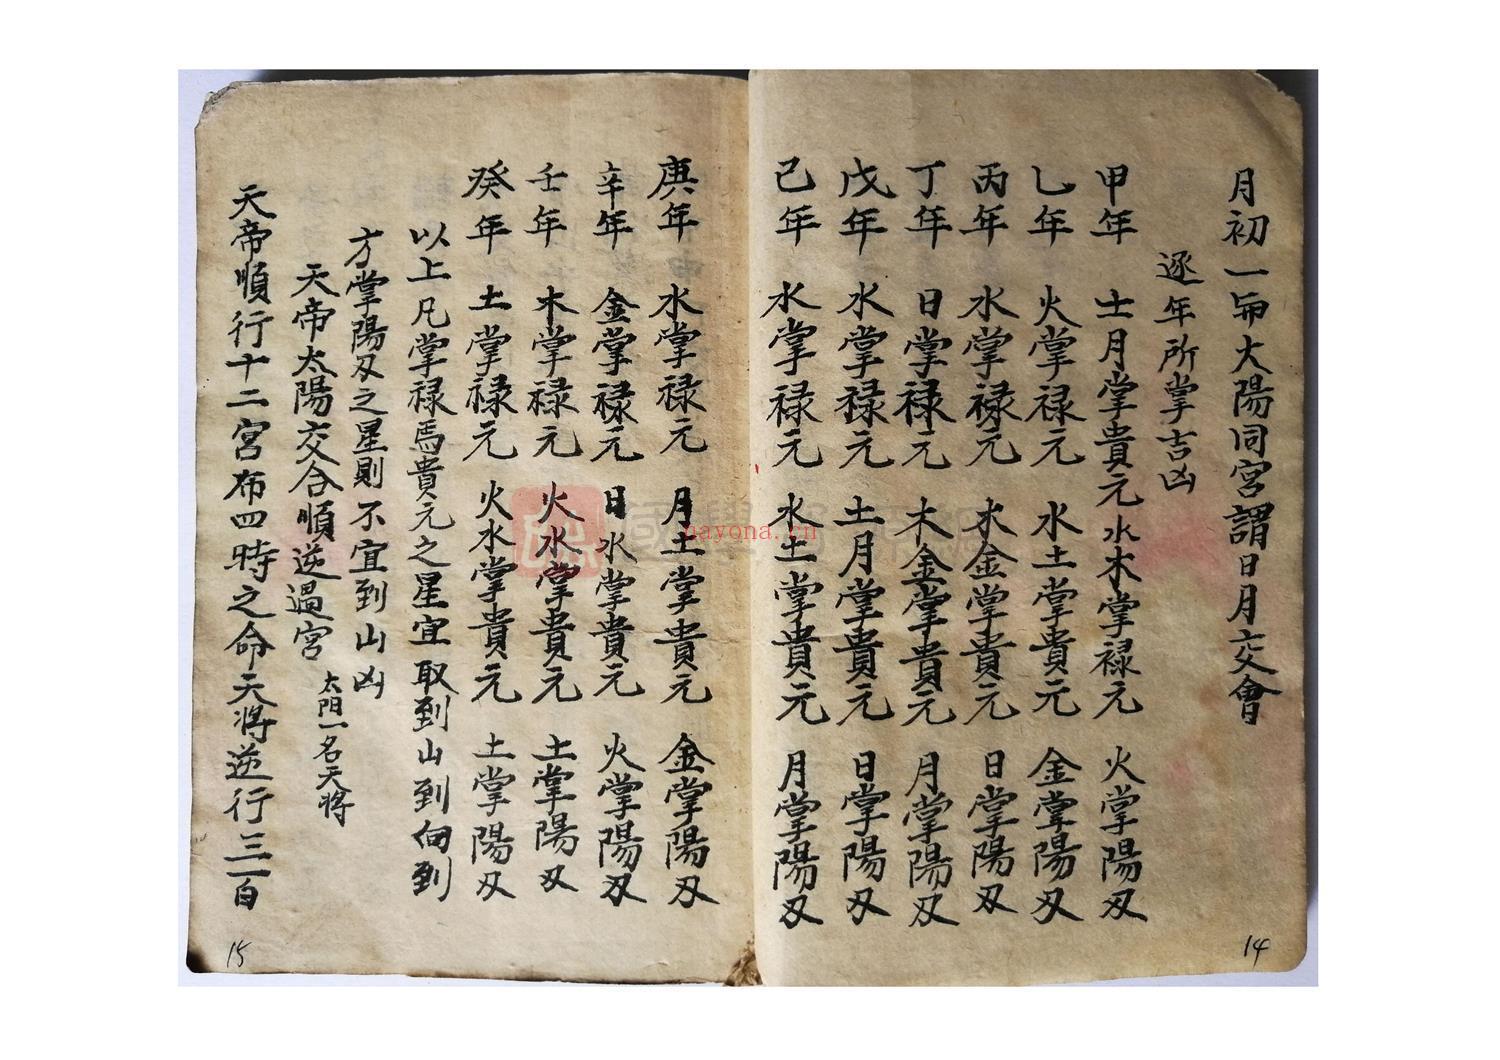 月初一而大陽同宮謂日月交會
逐年所掌吉凶
甲年 士月掌貴元水木掌禄元 火掌陽刄
乙年 火掌禄元 水土掌貴元 金掌陽刄
丙年 水掌禄元 木金掌貴元 日掌陽刄
丁年 日掌禄元 木金掌貴元 月掌陽刄
戊年 水掌禄元 土月掌貴元 日掌陽刄
己年 水掌禄元 水土掌貴元 月掌陽刄
14
庚年 水掌禄元 月土掌貴元 金掌陽刄
辛年 金掌禄元 日水掌貴元 火掌陽刄
壬年 木掌禄元 火水掌貴元 土掌陽刄
癸年 土掌禄元 火水掌貴元 土掌陽刄
以上凡掌禄元馬貴元之星宜取到山到向到
方掌陽刄之星則不宜到山凶
天帝太陽交合順逆過宮 太阳一名天将
天帝順行十二宮布四時之命天將逆行三百
15
nayona.cn